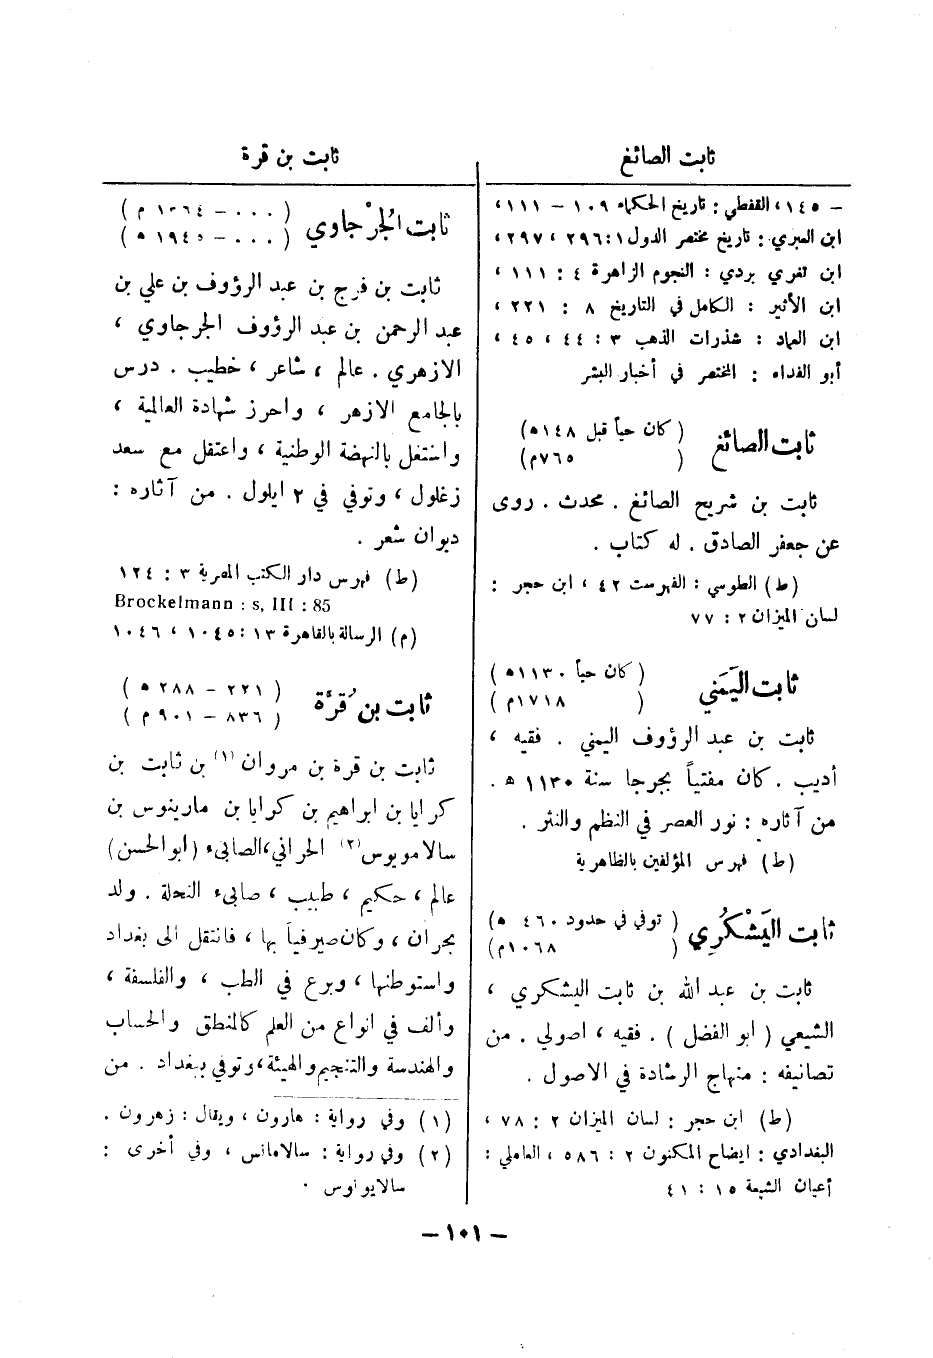 ثابت الصائغ
– ١٤٥، القفطي : تاريخ الحكماء ١٠٩ – ١١١،
ابن العبري : تاريخ مختصر الدول ١ : ٢٩٦، ٢٩٧،
ابن تغري بردي : النجوم الزاهرة ٤ : ١١١،
ابن الأثير : الكامل في التاريخ ٨ : ٢٢١،
ابن العماد : شذرات الذهب ٣ : ٤٤، ٤٥،
أبو الفداء : المختصر في أخبار البشر
ثابت الصائغ
( كان حياً قبل ١٤٨ ه)
( ٧٦٥م)
ثابت بن شريح الصائغ . محدث . روى
عن جعفر الصادق . له كتاب .
(ط) الطوسي : الفهرست ٤٢، ابن حجر :
لسان الميزان ٢ : ٧٧
ثابت اليَمَني
( كان حياً ١١٣٠ ه )
( ١٧١٨م )
ثابت بن عبد الرؤوف اليمني . فقيه ،
أديب . كان مفتياً بجرجا سنة ١١٣٠ ه .
من آثاره : نور العصر في النظم والنثر .
(ط) فهرس المؤلفين بالظاهرية
ثابت اليَشْكُرِي
( توفي في حدود ٤٦٠ ه)
( ١٠٦٨م)
ثابت بن عبد الله بن ثابت اليشكري ،
الشيعي ( ابو الفضل ) . فقيه ، اصولي . من
تصانيفه : منهاج الرشادة في الاصول .
(ط) ابن حجر : لسان الميزان ٢ : ٧٨ ،
البغدادي : ايضاح المكنون ٢ : ٥٨٦ ، العاملي :
أعيان الشيعة ١٥ : ٤١
ثابت بن قرة
ثابت الجُرْجاوي
( ٠٠٠ – ١٣٦٤ م )
( ٠٠٠ – ١٩٤٥ ه )
ثابت بن فرج بن عبد الرؤوف بن علي بن
عبد الرحمن بن عبد الرؤوف الجرجاوي ،
الازهري . عالم ، شاعر ، خطيب . درس
بالجامع الازهر ، واحرز شهادة العالمية ،
واشتغل بالنهضة الوطنية ، واعتقل مع سعد
زغلول ، وتوفي في ٢ ايلول . من آثاره :
ديوان شعر .
(ط) فهرس دار الكتب المصرية ٣ : ١٢٤
Brockelmann : s, III : 85
(م) الرسالة بالقاهرة ١٣ : ١٠٤٥ ، ١٠٤٦
ثابت بن قُرَّة
( ٢٢١ – ٢٨٨ ه )
( ٨٣٦ – ٩٠١ م )
ثابت بن قرة بن مروان (١) بن ثابت بن
كرايا بن ابراهيم بن كرايا بن مارينوس بن
سالامويوس (٢) الحراني، الصابىء ( ابو الحسن )
عالم ، حكيم ، طبيب ، صابىء النحلة . ولد
بحران ، وكان صيرفياً بها ، فانتقل الى بغداد
واستوطنها ، وبرع في الطب ، والفلسفة ،
وألف في انواع من العلم كالمنطق والحساب
والهندسة والتنجيم والهيئة، وتوفي ببغداد . من
(١) وفي رواية : هارون ، ويقال : زهرون .
(٢) وفي رواية : سالامانس ، وفي أخرى :
سالايونوس .
– ١٠١ –